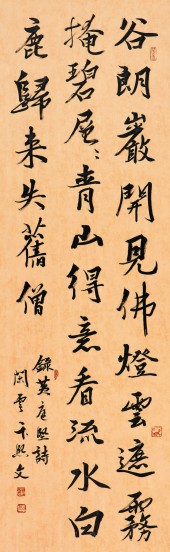 谷朗巖開見佛燈雲遮霧
掩碧層〻青山得意看流水白
鹿歸来失舊僧
錄黃庭堅詩
閑雲卞熙文